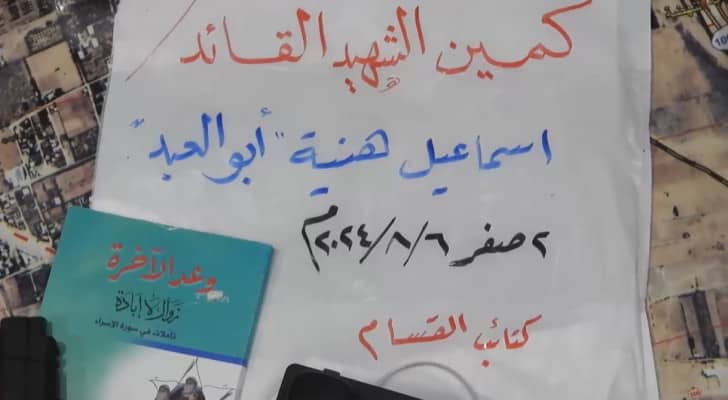 كمين الشهيد القائد
اسماعيل هنية "أبو العبد"
٢ صفر ٢٠٢٤/٨/٦م
كتائب القسام
وعد الآخرة
زوال لا إبادة
تأملات في سورة الإسراء